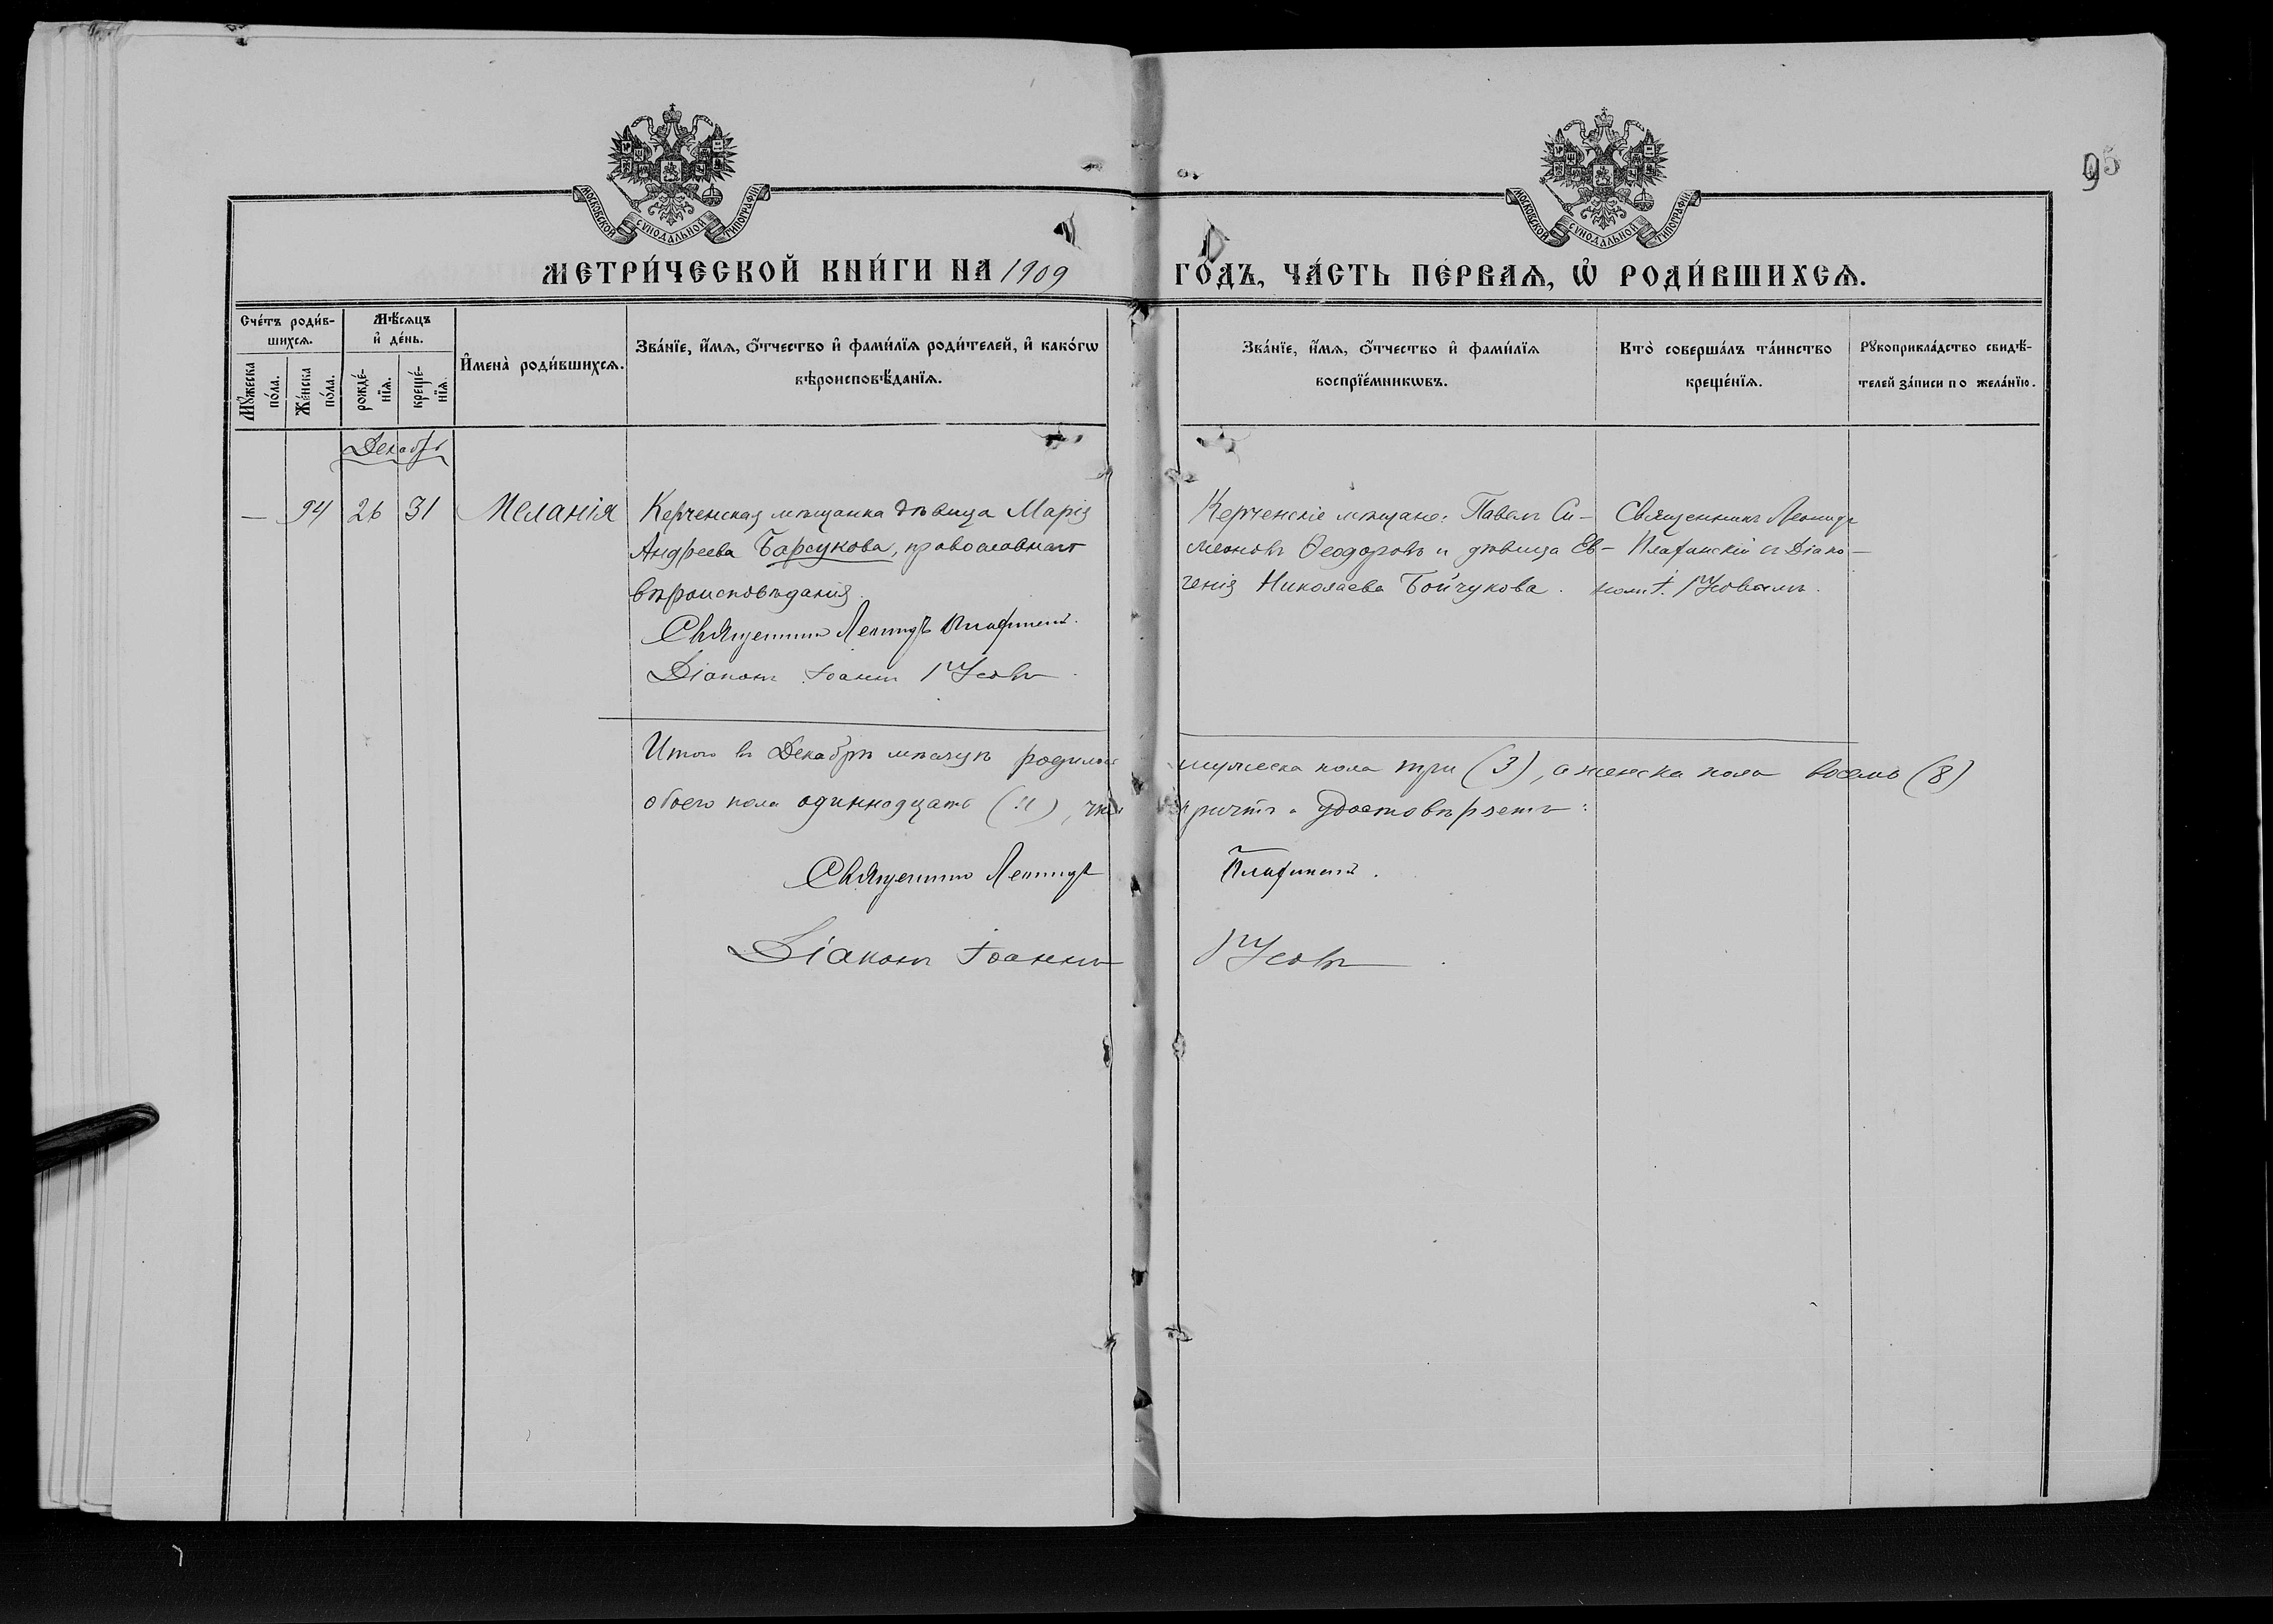 95
МОСКОВСКОЙ СѴНОДАЛЬНОЙ ТИПОГРАФІИ
МОСКОВСКОЙ СѴНОДАЛЬНОЙ ТИПОГРАФІИ
МЕТРИ́ЧЕСКОЙ КНИ́ГИ НА 1909 ГО́ДЪ, ЧА́СТЬ ПЕ́РВАѦ, Ѡ҆ РОДИ́ВШИХСѦ.
Сче́тъ роди́в-
шихсѧ.
Мꙋ́жеска по́ла.
Же́нска по́ла.
Мѣ́сѧцъ
и҆ де́нь.
рожде́-
нїѧ.
креще́-
нїѧ.
И҆мена̀ роди́вшихсѧ.
Зва́нїе, и҆́мѧ, ѻ҆́тчество и҆ фами́лїѧ роди́телей, и҆ како́гѡ
вѣроисповѣ́данїѧ.
Зва́нїе, и҆́мѧ, ѻ҆́тчество и҆ фами́лїѧ
воспрїе́мникѡвъ.
Кто̀ соверша́лъ та́инство
креще́нїѧ.
Рꙋкоприкла́дство свидѣ́-
телей за́писи по жела́нїю.
Декабрь
— 94 26 31 Меланія
Керченская мѣщанка дѣвица Марія
Андреева Барсукова, православнаго
вѣроисповѣданія.
Священникъ Леонидъ
Діаконъ Іоаннъ Усовъ
Керченскіе мѣщане: Павелъ Си-
меоновъ Ѳеодоровъ и дѣвица Ев-
генія Николаева Бойчукова.
Священникъ Леонидъ
съ Діако-
номъ І. Усовымъ.
Итого въ Декабрѣ мѣсяцѣ родилось мужеска пола три (3), а женска пола восемь (8)
обоего пола одиннадцать (11), что причтъ и удостовѣряетъ:
Священникъ Леонидъ
Діаконъ Іоаннъ Усовъ